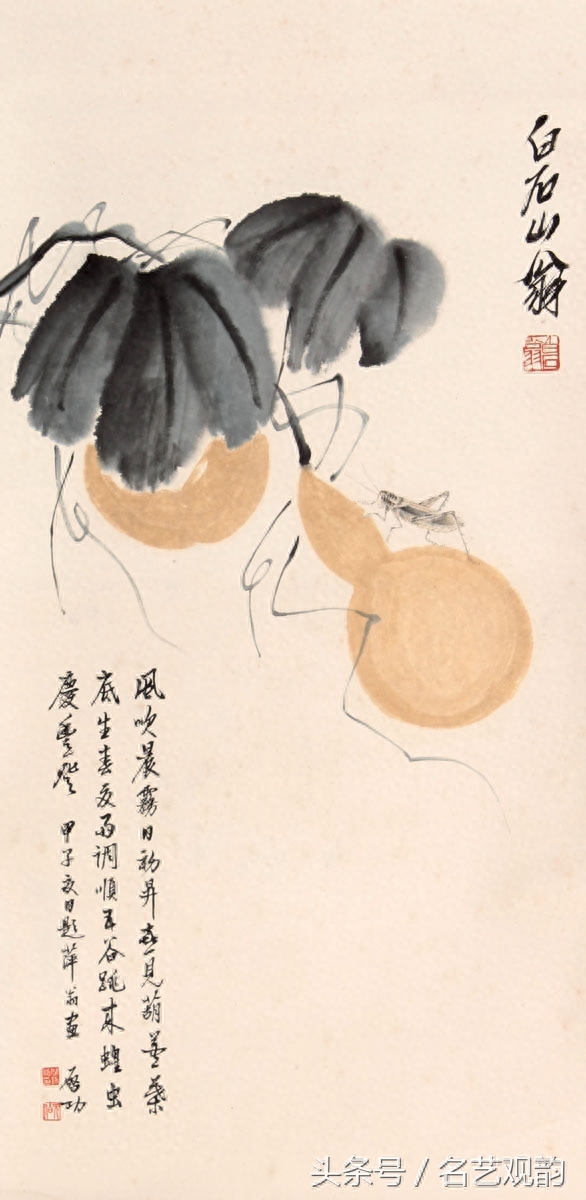 白石山翁
風吹晨霧日初昇喜見葫蘆葉
底生春夏雨调順五谷跳来蝗虫
慶豐登 甲子夏日題萍翁画 启功
头条号 / 名艺观韵